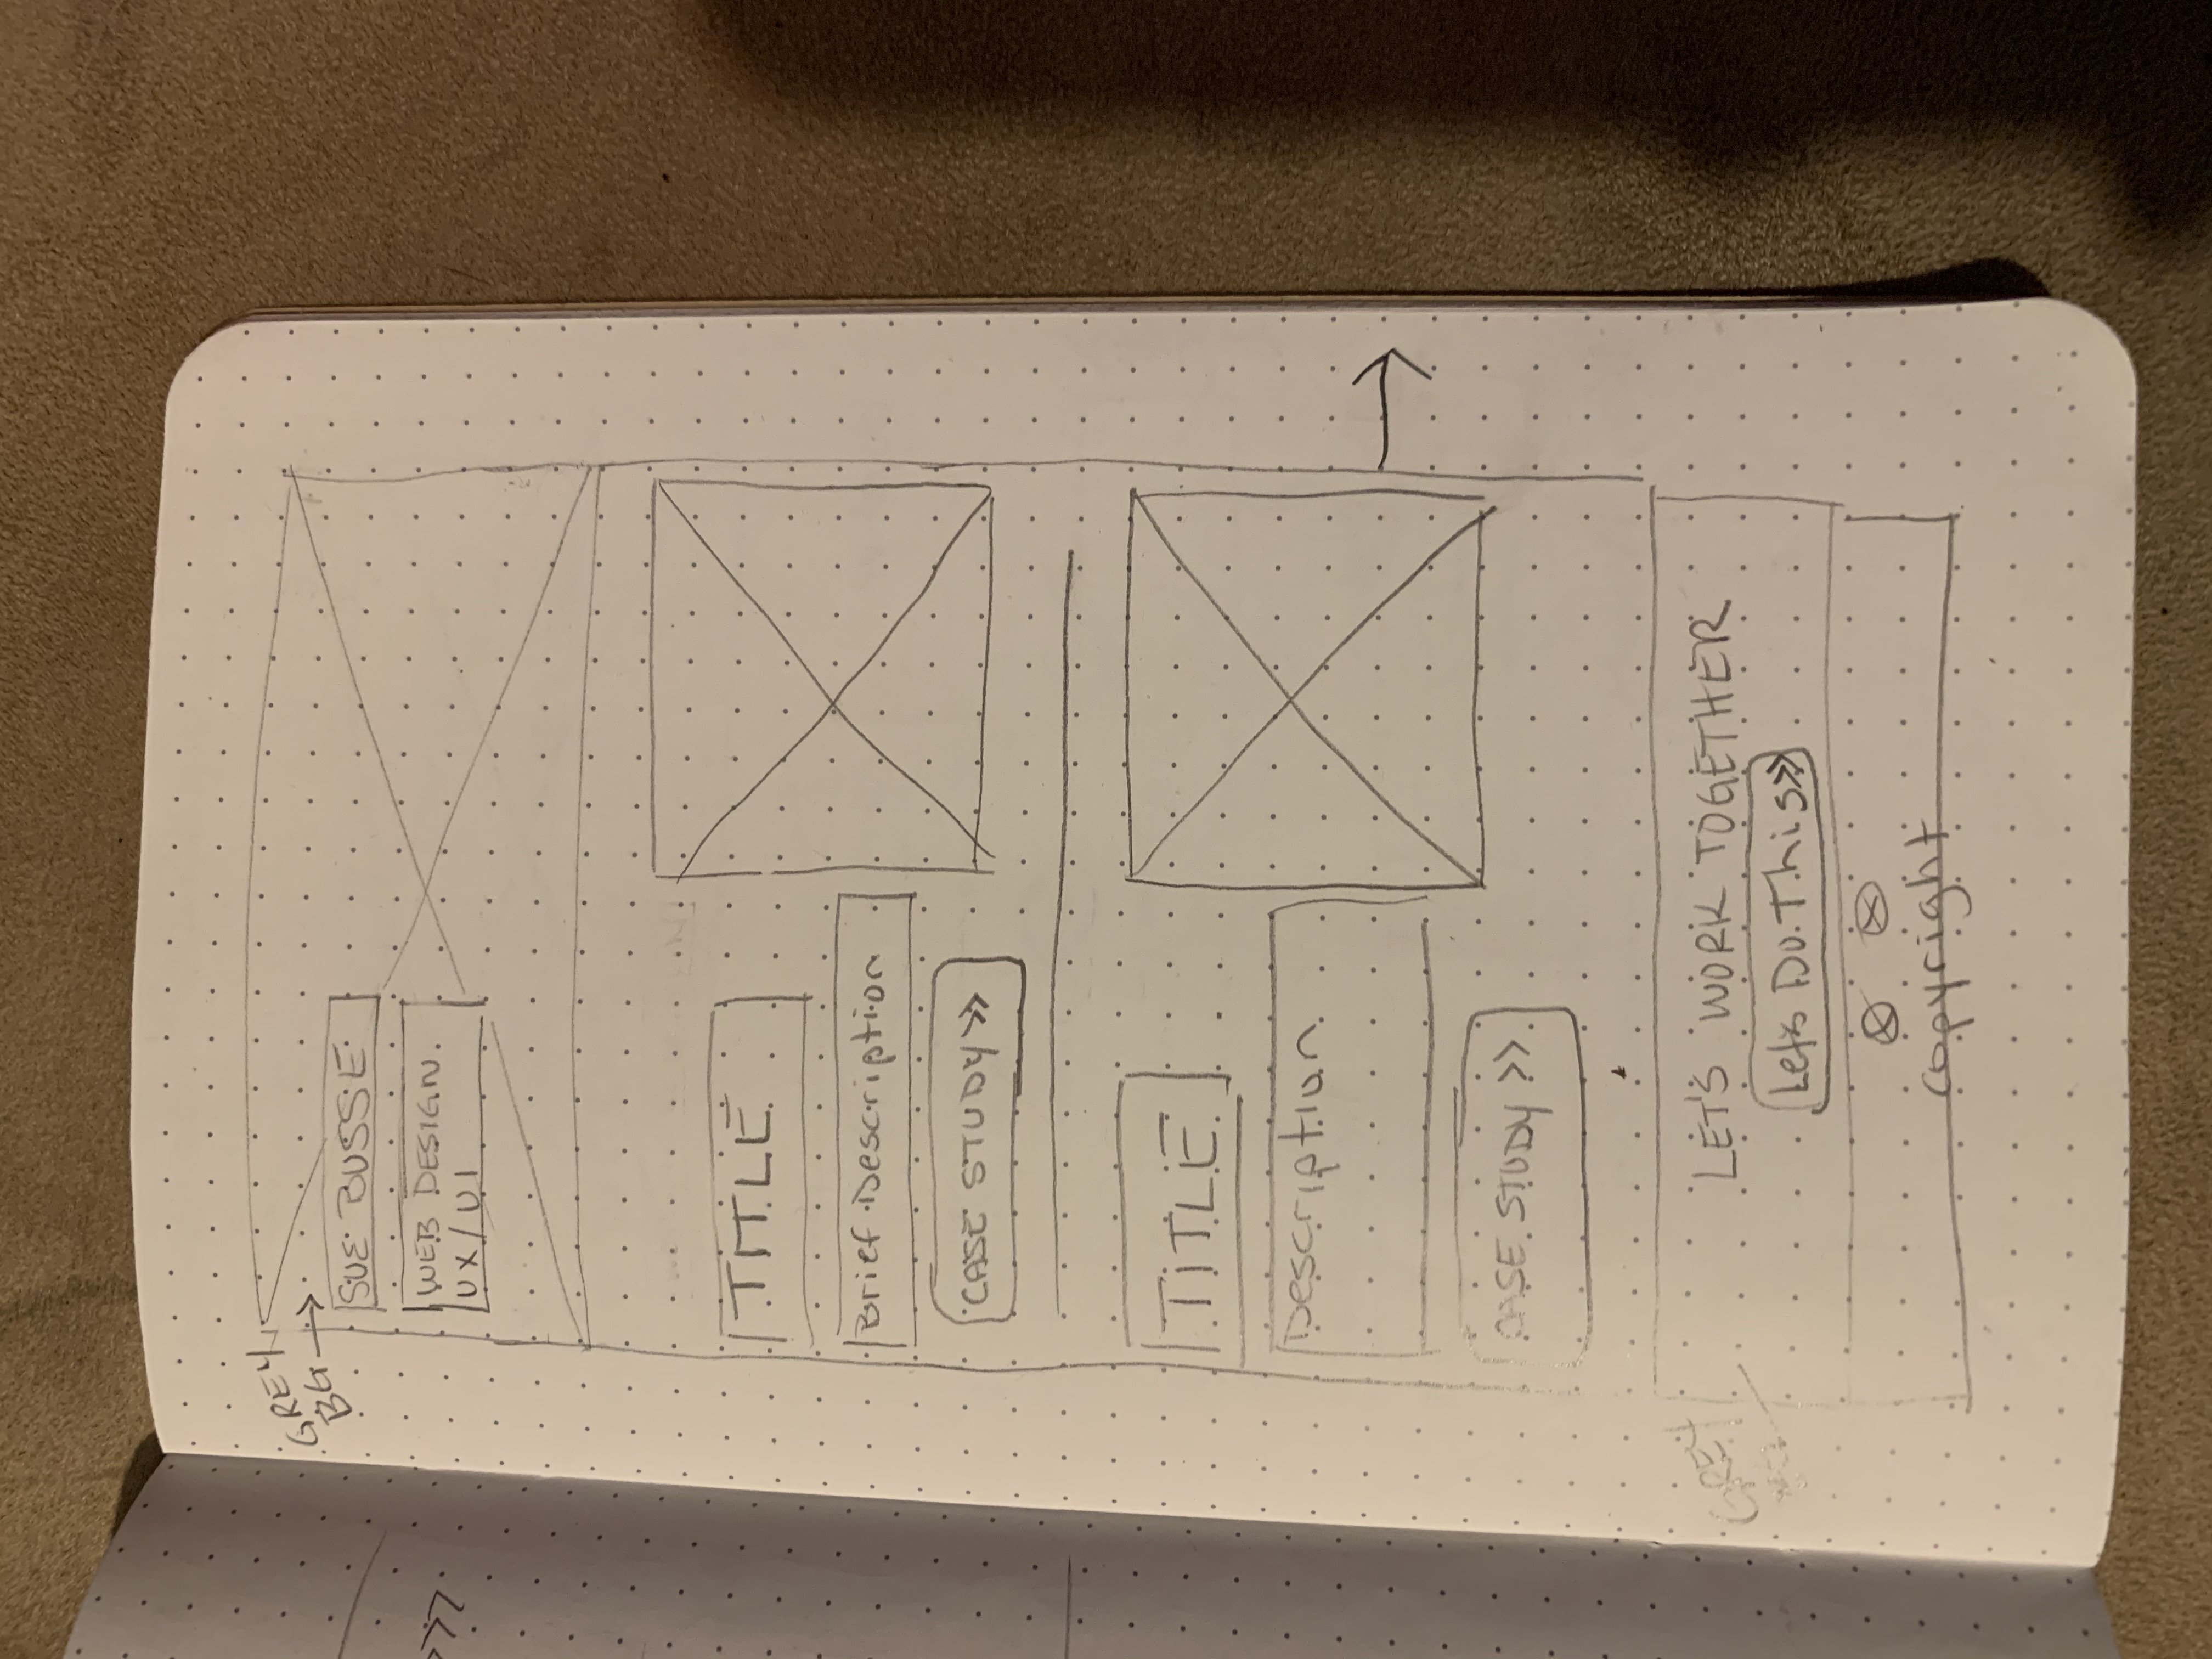 GREY
BG →
SUE BUSSE
WEB DESIGN
UX/UI
TITLE
Brief Description
CASE STUDY >>
TITLE
Description
CASE STUDY >>
GREY
LET'S WORK TOGETHER
Let's Do This >>
copyright
>>>